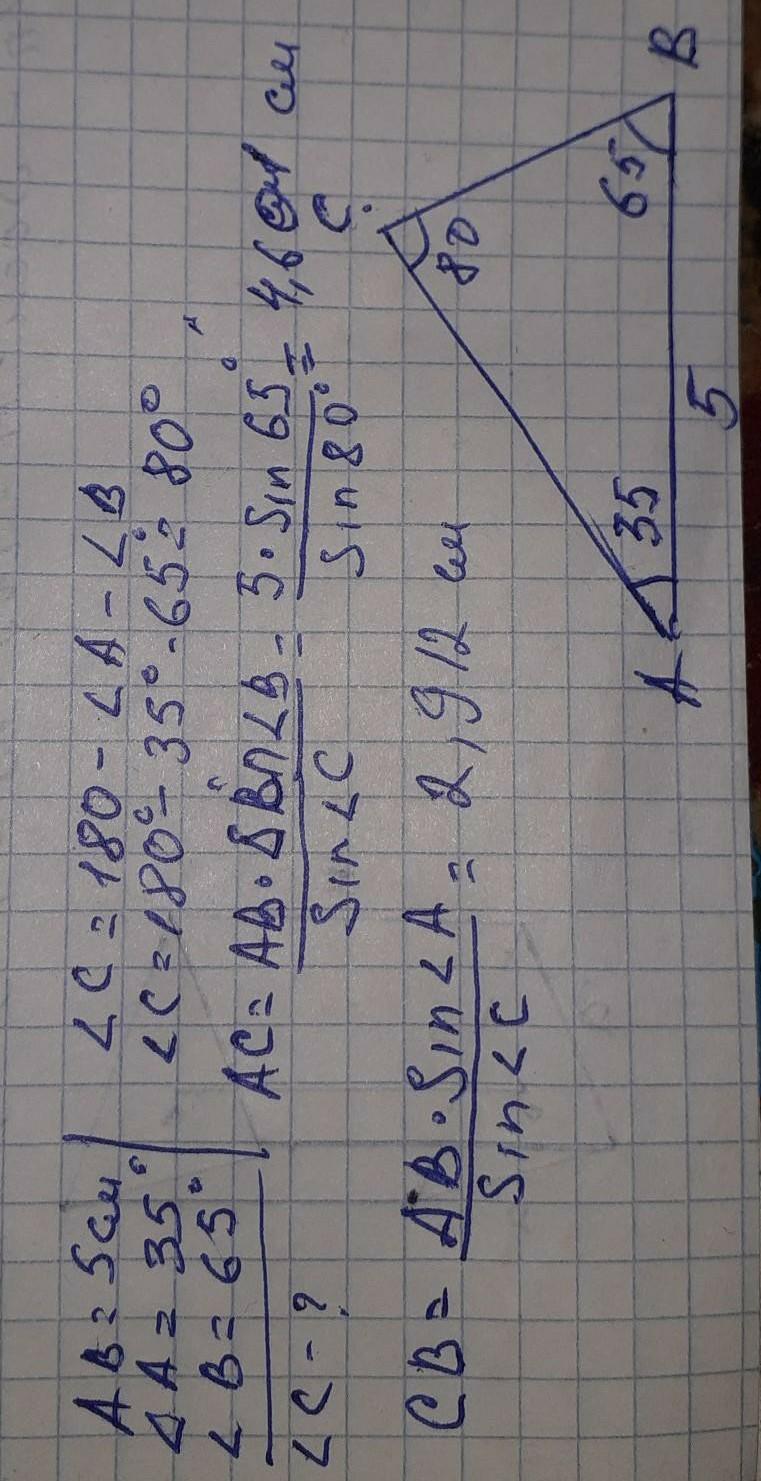 AB = 5см
∠A = 35°
∠B = 65°
∠C - ?
∠C = 180 - ∠A - ∠B
∠C = 180° - 35° - 65° = 80°
AC = AB · Sin∠B / Sin∠C = 5 · Sin 65° / Sin 80° = 4,6 см
CB = AB · Sin∠A / Sin∠C = 2,912 см
C
80
A 35 65 B
5